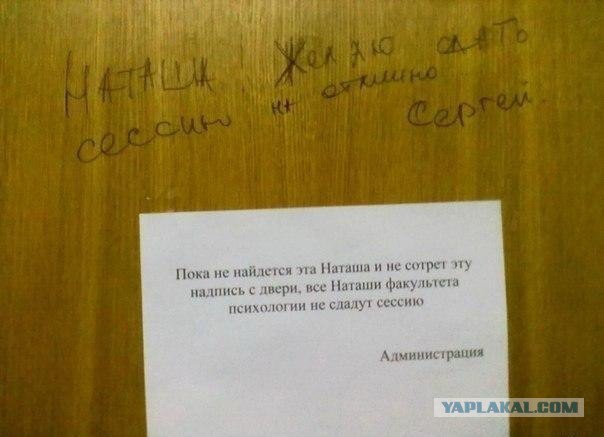 НАТАША! Желаю сдать
сессию на отлично
Сергей.
Пока не найдется эта Наташа и не сотрет эту
надпись с двери, все Наташи факультета
психологии не сдадут сессию
Администрация
YAPLAKAL.COM